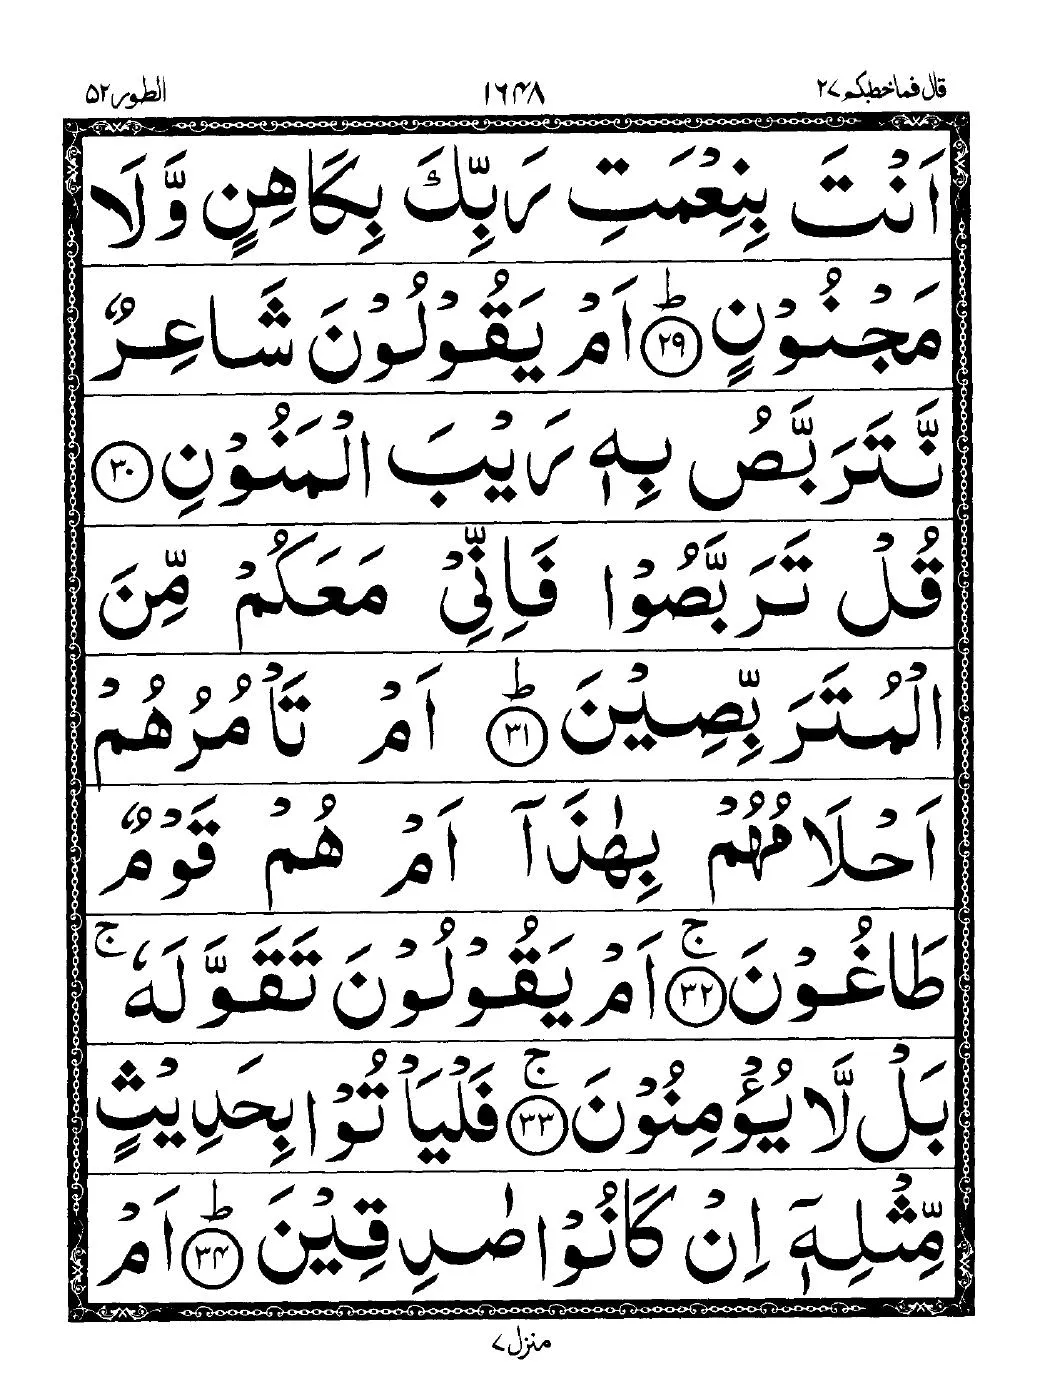 قال فماخطبكم ٢٧ ١٦۴٨ الطور ۵٢
اَنْتَ بِنِعْمَتِ رَبِّكَ بِكَاهِنٍ وَّلَا
مَجْنُوْنٍ ؕ ﴿٢٩﴾ اَمْ يَقُوْلُوْنَ شَاعِرٌ
نَّتَرَبَّصُ بِهٖ رَيْبَ الْمَنُوْنِ ﴿٣٠﴾
قُلْ تَرَبَّصُوْا فَاِنِّىْ مَعَكُمْ مِّنَ
الْمُتَرَبِّصِيْنَ ؕ ﴿٣١﴾ اَمْ تَاْمُرُهُمْ
اَحْلَامُهُمْ بِهٰذَآ اَمْ هُمْ قَوْمٌ
طَاغُوْنَ ۚ ﴿٣٢﴾ اَمْ يَقُوْلُوْنَ تَقَوَّلَهٗ ۚ
بَلْ لَّا يُؤْمِنُوْنَ ۚ ﴿٣٣﴾ فَلْيَاْتُوْا بِحَدِيْثٍ
مِّثْلِهٖٓ اِنْ كَانُوْا صٰدِقِيْنَ ؕ ﴿٣۴﴾ اَمْ
منزل ٧